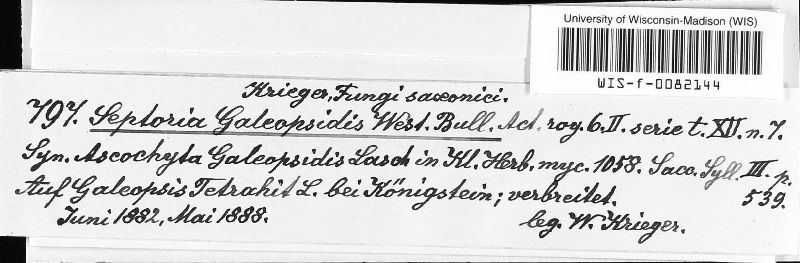 University of Wisconsin-Madison (WIS)
WIS-f-0082144
Krieger, Fungi saxonici.
797. Septoria Galeopsidis West. Bull. Act. roy. b. II. serie t. XII. n. 7.
Syn. Ascochyta Galeopsidis Lasch in Kl. Herb. myc. 1058. Sacc. Syll. III. p. 539.
Auf Galeopsis Tetrahit L. bei Königstein; verbreitet.
Juni 1882, Mai 1888.
leg. W. Krieger.